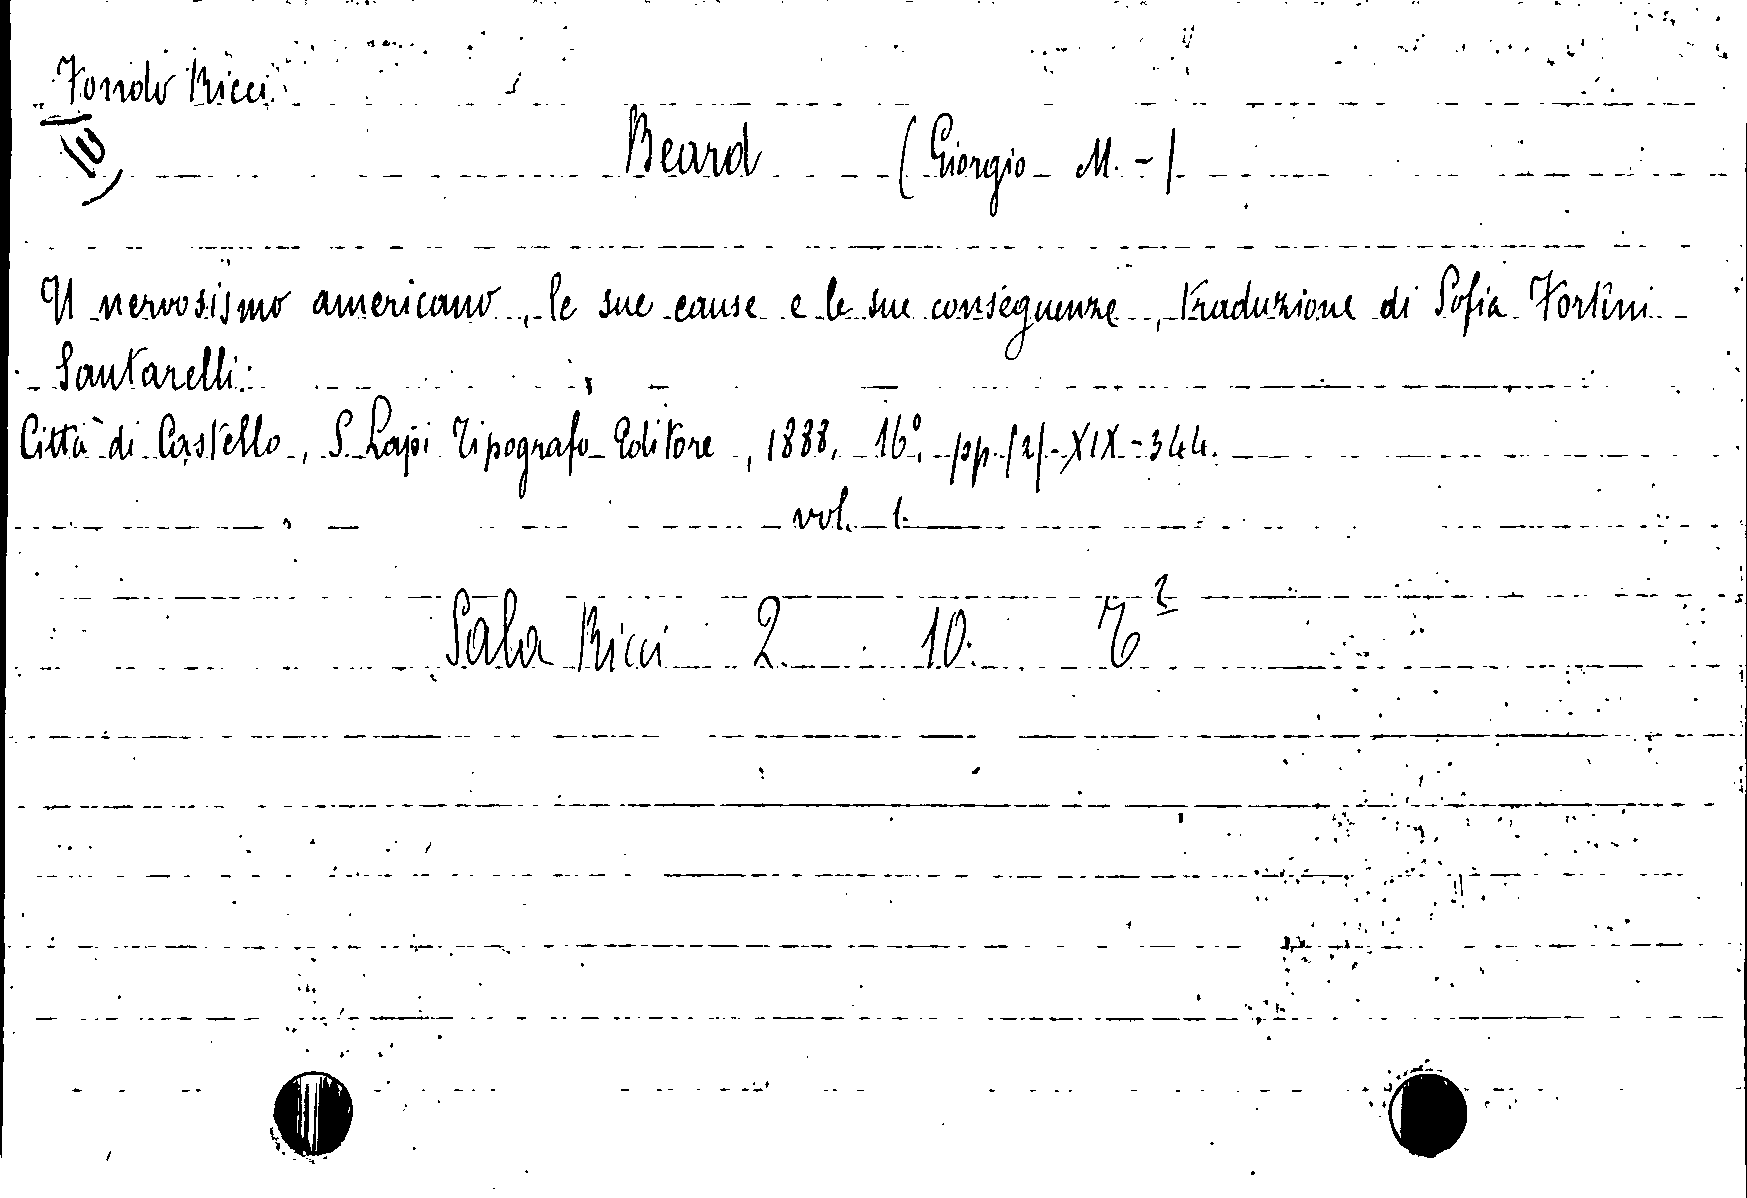 Fondo Ricci
Beard (Giorgio M. -)
Il nervosismo americano, le sue cause e le sue conseguenze, traduzione di Sofia Fortini
Santarelli.
Città di Castello, S. Lapi Tipografo Editore, 1888, 16°, pp. [2]-XIX-344.
vol. 1.
Sala Ricci 2. 10.